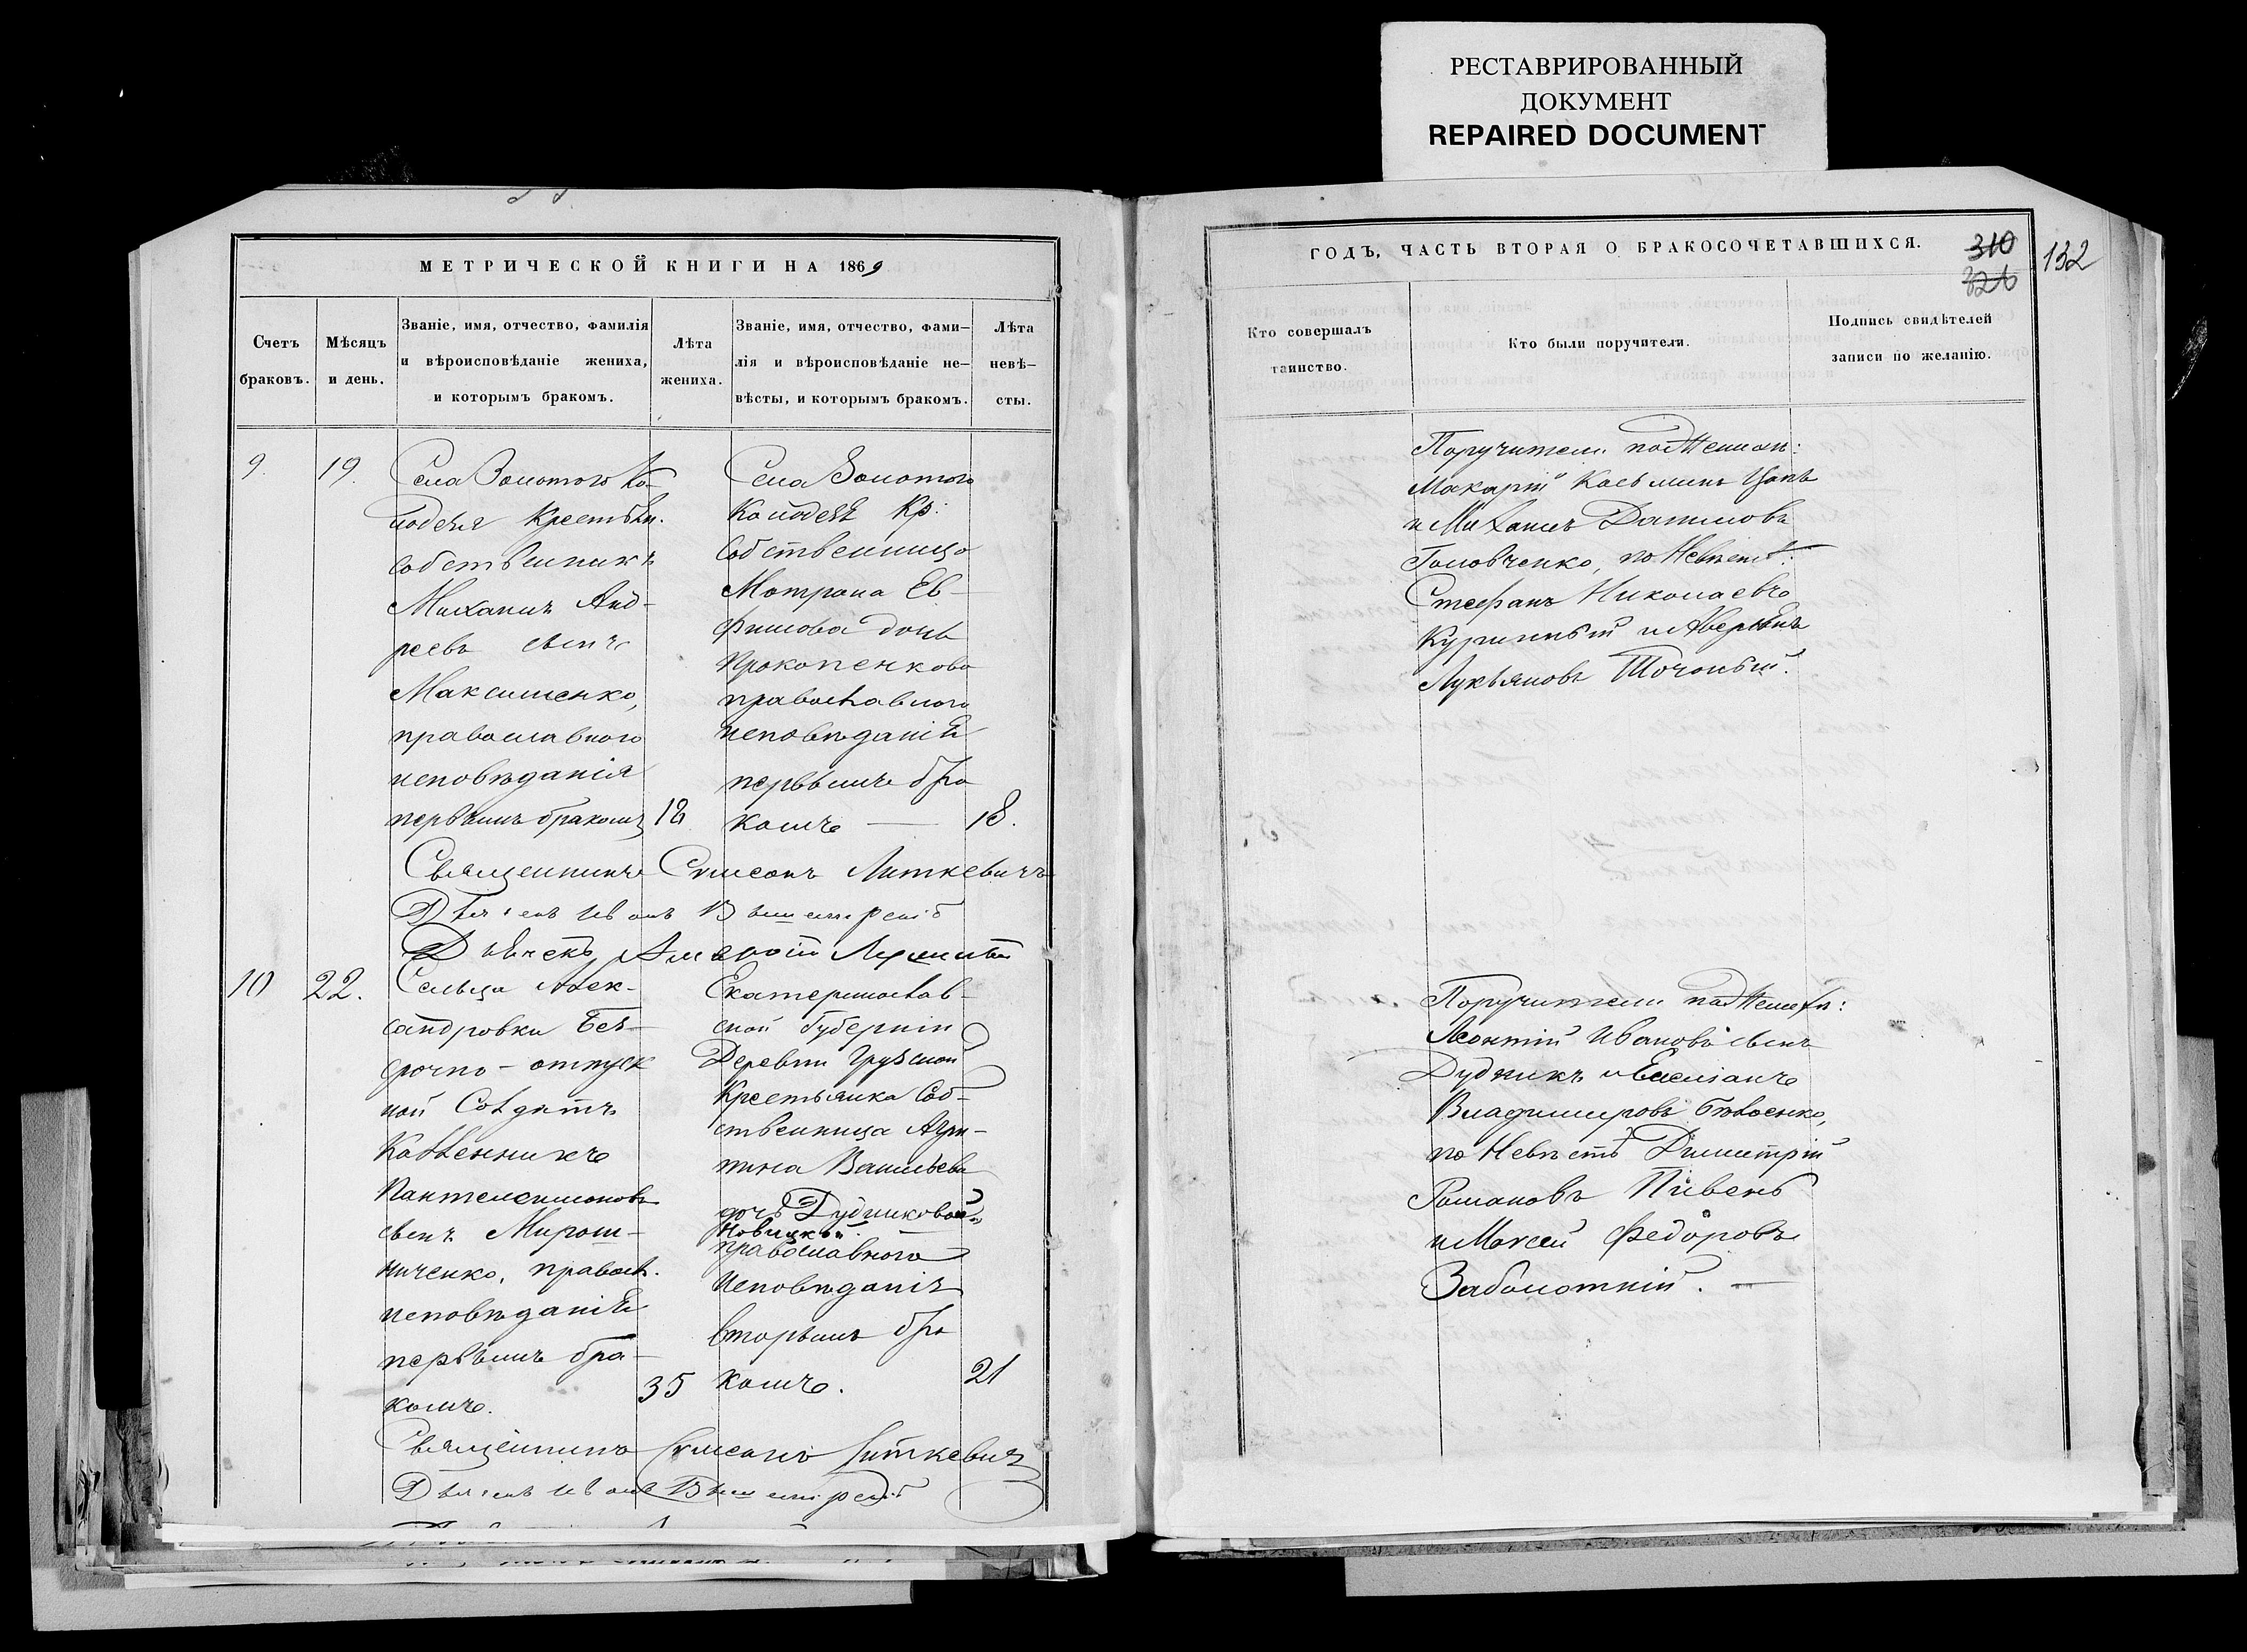 РЕСТАВРИРОВАННЫЙ
ДОКУМЕНТ
REPAIRED DOCUMENT
МЕТРИЧЕСКОЙ КНИГИ НА 1869
Счетъ
браковъ.
Мѣсяцъ
и день.
Званіе, имя, отчество, фамилія
и вѣроисповѣданіе жениха,
и которымъ бракомъ.
Лѣта
жениха.
Званіе, имя, отчество, фами–
лія и вѣроисповѣданіе не–
вѣсты, и которымъ бракомъ.
Лѣта
невѣ–
сты.
9.
19.
Села Золотого Ко-
лодезя Крестьян.
собственникъ
Михаилъ Анд-
реевъ сынъ
Максименко,
православного
исповѣданія
первымъ бракомъ
Села Золотого
Колодезя Кр.
собственница
Мотрона Ев-
фимова дочь
Прокопенкова
православного
исповѣданія
первымъ бра
комъ —
18.
Священникъ Симеонъ Литкевичъ
Иванъ
10
22.
Сельца Алек-
сандровки Без-
срочно-отпуск
ной Солдатъ
Пантелеимоновъ
сынъ Мирош-
ниченко, правосл.
исповѣданія
первымъ бра-
комъ.
35
Екатеринослав-
ской Губерніи
Деревни Грузской
Крестьянка Соб-
ственница Агри-
пина Васильева
дочь Дудникова
Новицкой
православного
исповѣданія
вторымъ бра
комъ.
21
Священникъ Симеонъ Литкевичъ
Иванъ
ГОДЪ, ЧАСТЬ ВТОРАЯ О БРАКОСОЧЕТАВШИХСЯ.
310
326
132
Кто совершалъ
таинство.
Кто были поручители.
Подпись свидѣтелей
записи по желанію.
Поручители по Жених:
Макарій Косьминъ
и Михаилъ Даниловъ
Головченко, по Невѣстѣ:
Стефанъ Николаевъ
Куринный и Аверкій
Лукьяновъ
Поручители по Жених:
Леонтій Ивановъ сынъ
Дудникъ и Емеліанъ
Владимировъ
по Невѣстѣ Димитрій
Романовъ Пивень
и Моисей Федоровъ
Заболотній. —